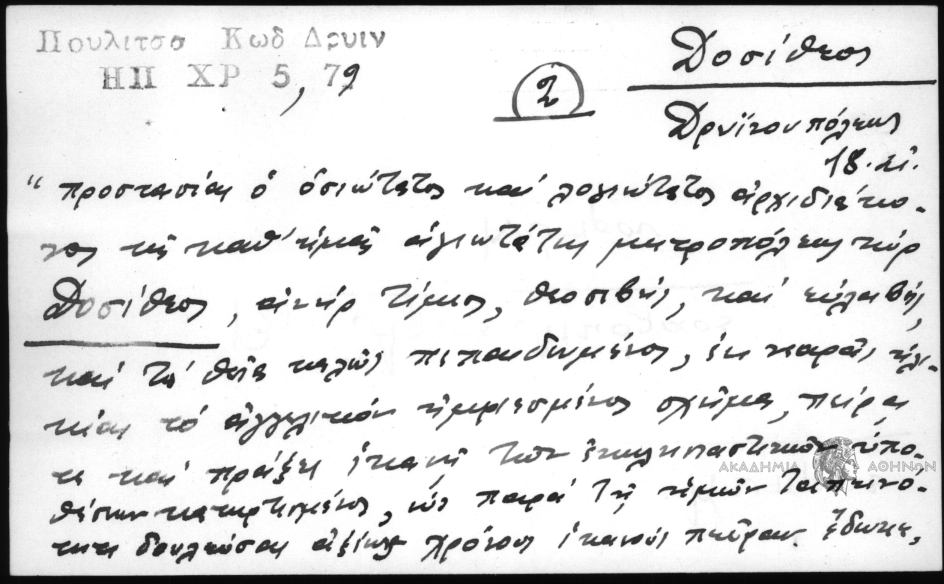 Πουλιτσα Κωδ Δρυιν
ΗΠ ΧΡ 5, 79
2
Δοσίθεος
Δρυϊνουπόλεως
18 αἰ.
“ προστασίαι ὁ ὁσιώτατος καὶ λογιώτατος ἀρχιδιάκο-
νος τῆς καθ' ἡμᾶς ἁγιωτάτης μητροπόλεως κὺρ
Δοσίθεος, ἀνὴρ τίμιος, θεοσεβής, καὶ εὐλαβής,
καὶ τὰ θεῖα καλῶς πεπαιδευμένος, ἐκ νεαρᾶς ἡλι-
κίας τὸ ἀγγελικὸν ἠμφιεσμένος σχῆμα, πείρᾳ
τε καὶ πράξει ἱκανῇ τῶν ἐκκλησιαστικῶν ὑπο-
θέσεων κατηρτισμένος, ὡς παρὰ τῇ ἡμῶν ταπεινό-
τητι δουλεύσας ἀξίως χρόνους ἱκανοὺς πεῖραν ἔδωκε,
ΑΚΑΔΗΜΙΑ ΑΘΗΝΩΝ